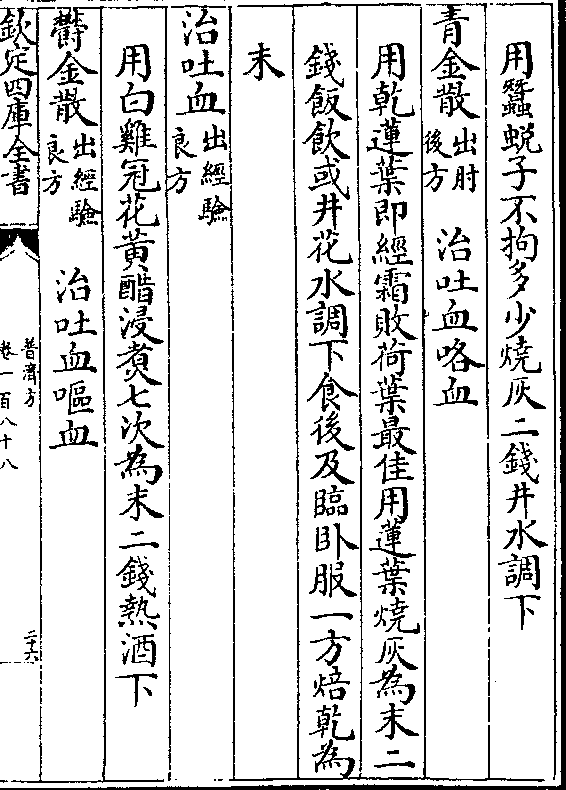 用蠶蛻子不拘多少燒灰二錢井水調下
青金散出肘後方　治吐血咯血
用乾蓮葉即經霜敗荷葉最佳用蓮葉燒灰為末二
錢飯飲或井花水調下食後及臨卧服一方焙乾為
末
治吐血出經驗良方
用白雞冠花黄醋浸煮七次為末二錢熱酒下
欝金散出經驗良方　治吐血嘔血
欽定四庫全書
普濟方
卷一百八十八
二十六